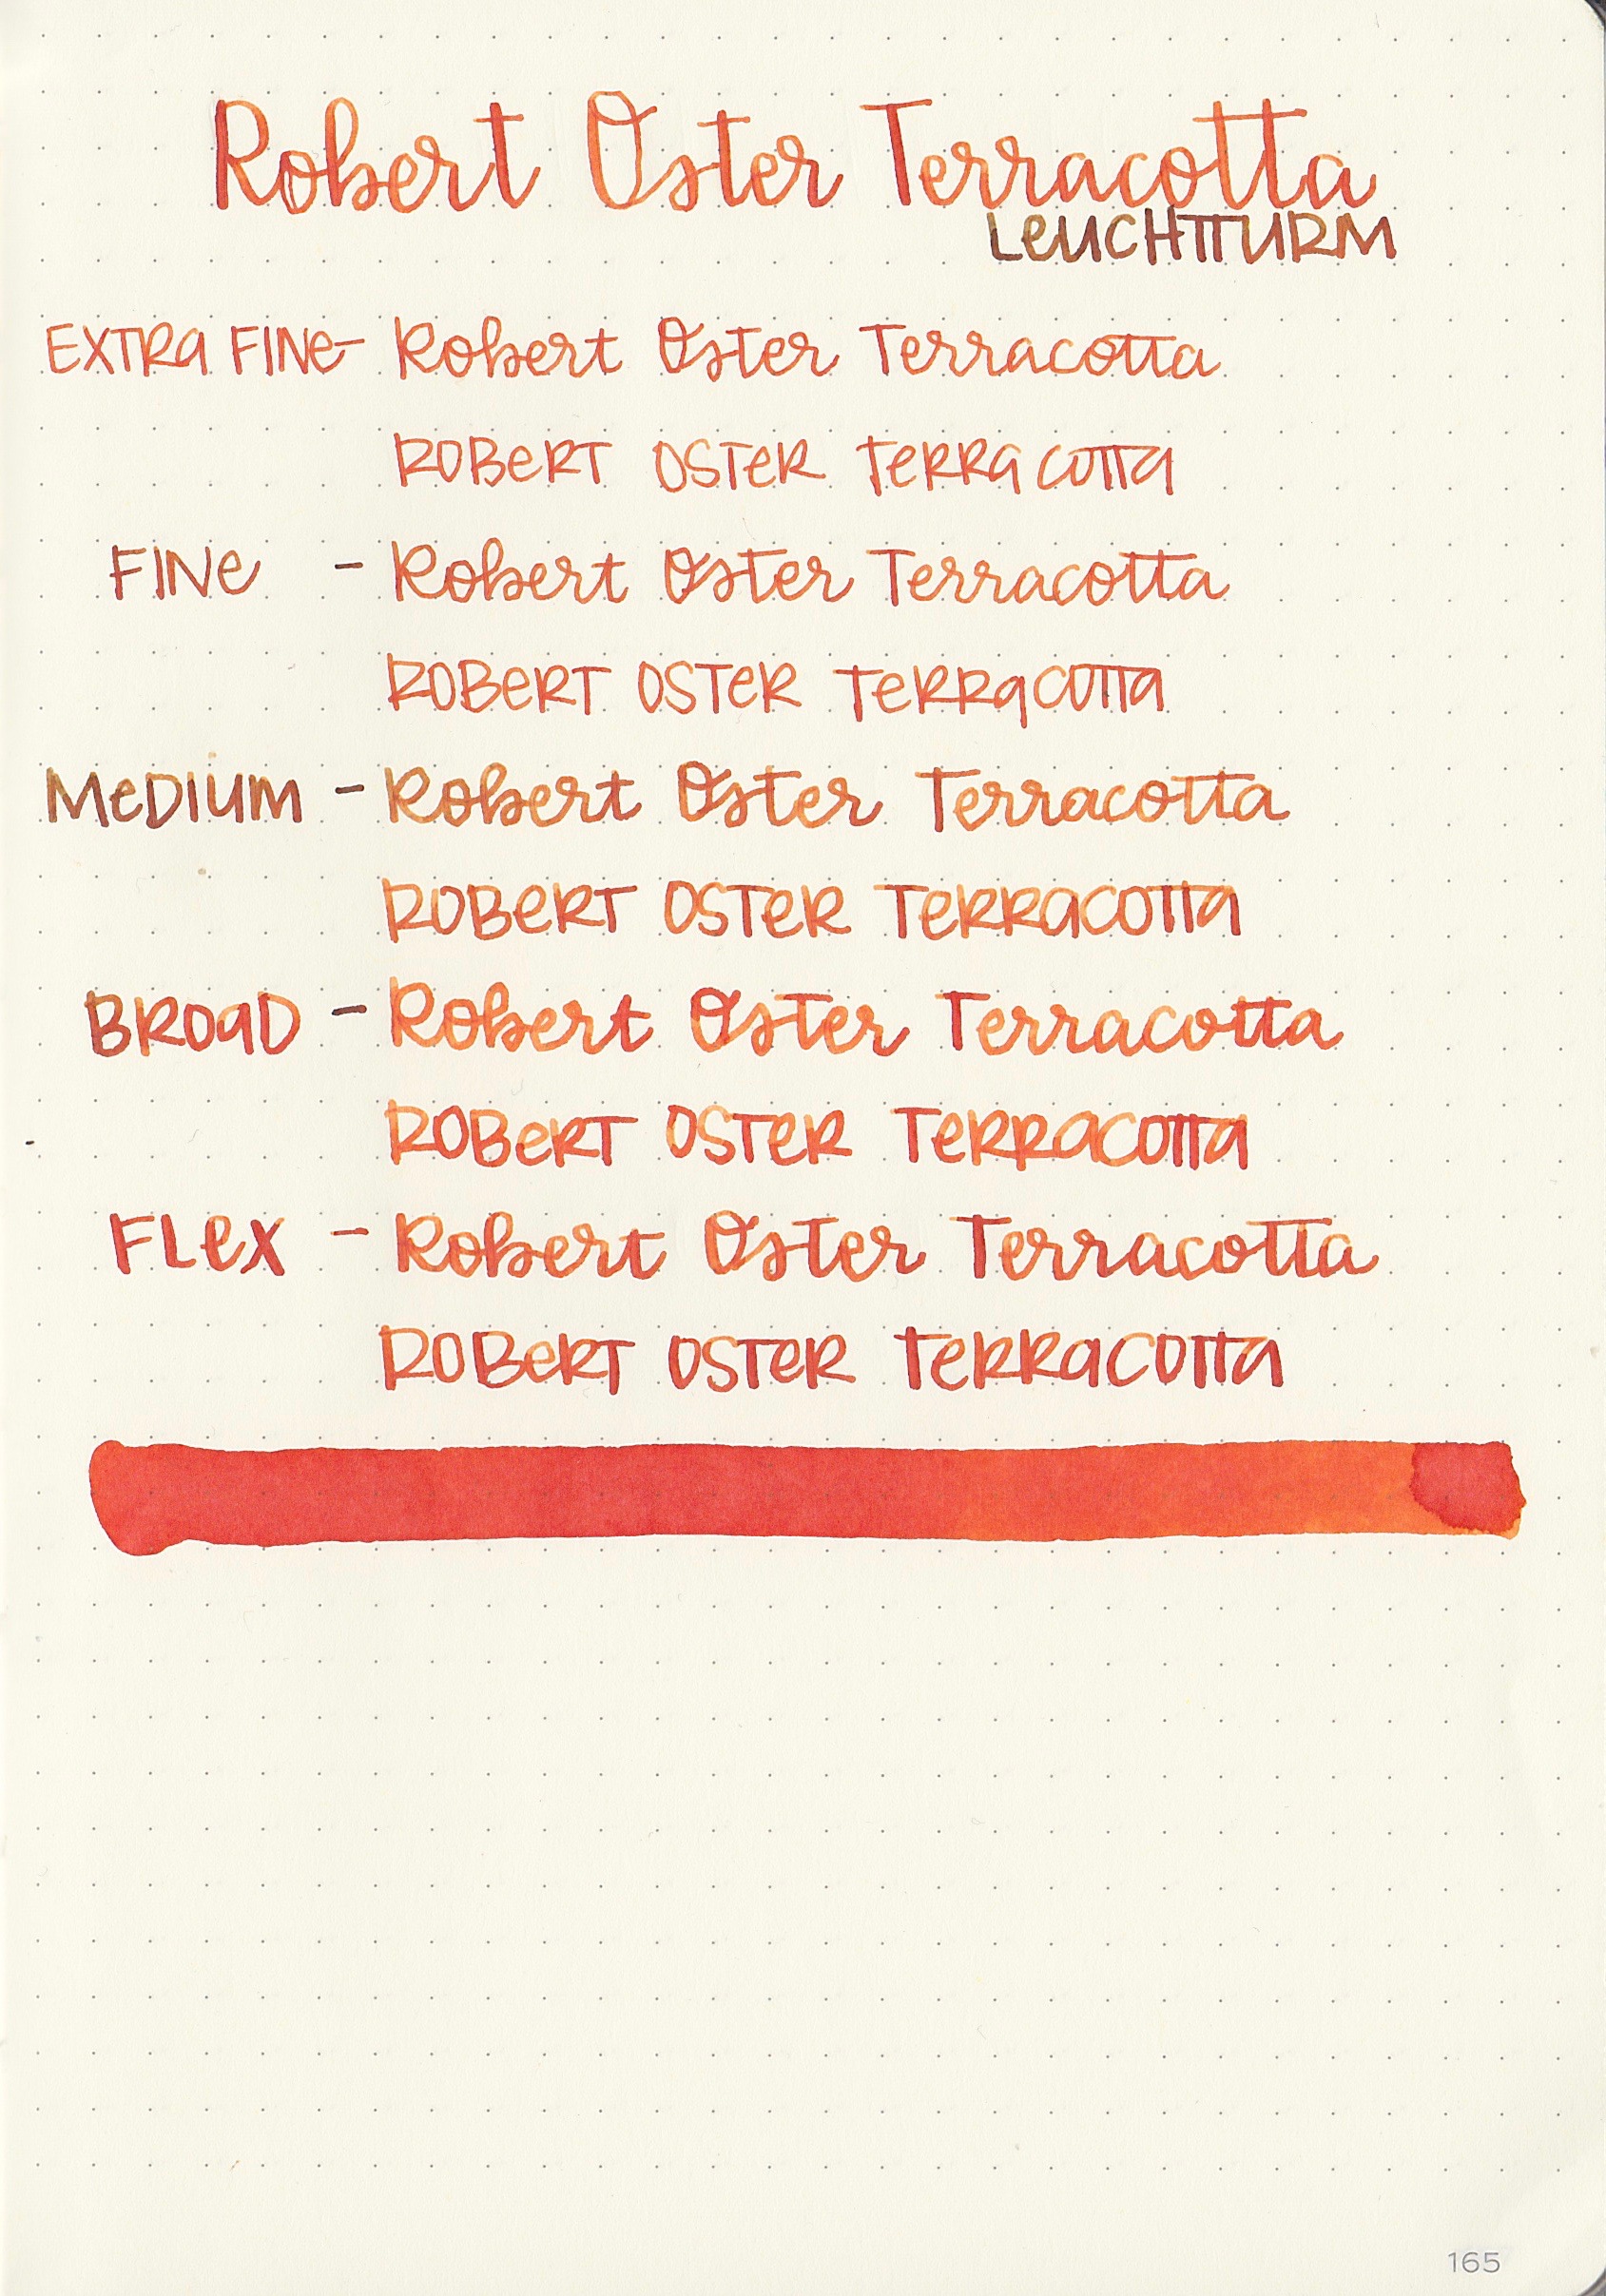 Robert Oster Terracotta
LeUCHTTURM
EXTRa FINe- Robert Oster Terracotta
ROBeRT OSTeR TeRRa COTTa
FINe - Robert Oster Terracotta
ROBeRT OSTeR TeRRaCOTTa
MeDIUM - Robert Oster Terracotta
ROBeRT OSTeR TeRRaCOTTa
BROaD - Robert Oster Terracotta
ROBeRT OSTeR TeRRaCOTTa
FLeX - Robert Oster Terracotta
ROBeRT OSTeR TeRRaCOTTa
165